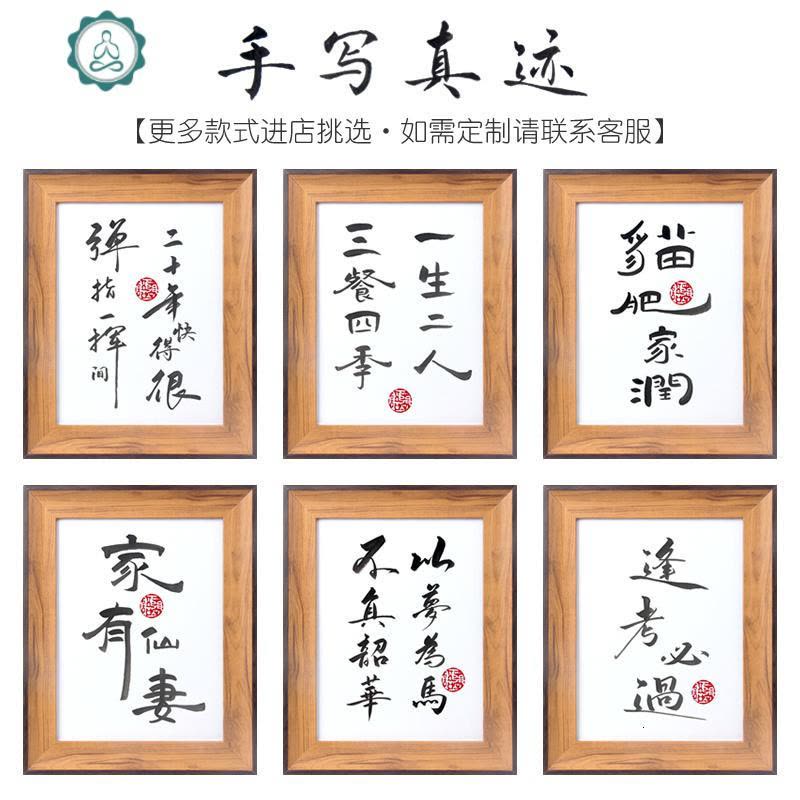 手写真迹
【更多款式进店挑选·如需定制请联系客服】
二十年快得很
弹指一挥间
一生二人
三餐四季
貓肥家潤
家有仙妻
以夢為馬
不負韶華
逢考必過